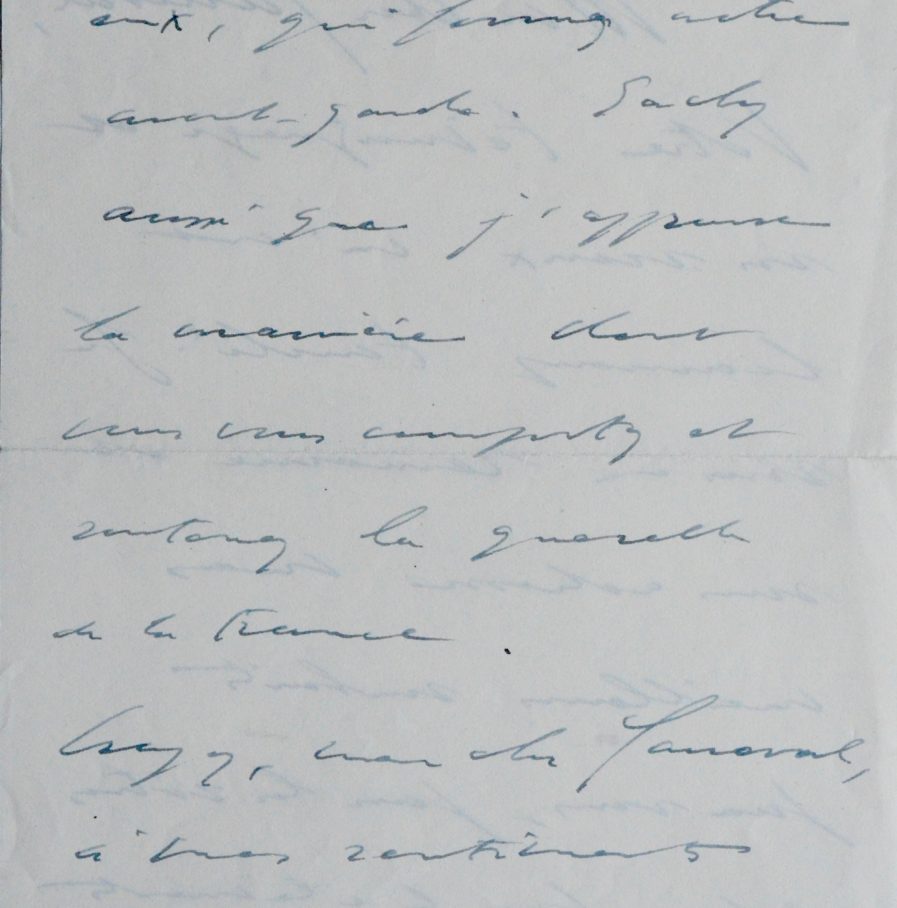 eux, qui formez notre
avant-garde. Sachez
aussi que j'approuve
la manière dont
vous vous comportez et
soutenez la querelle
de la France
Croyez, mon cher
à mes sentiments